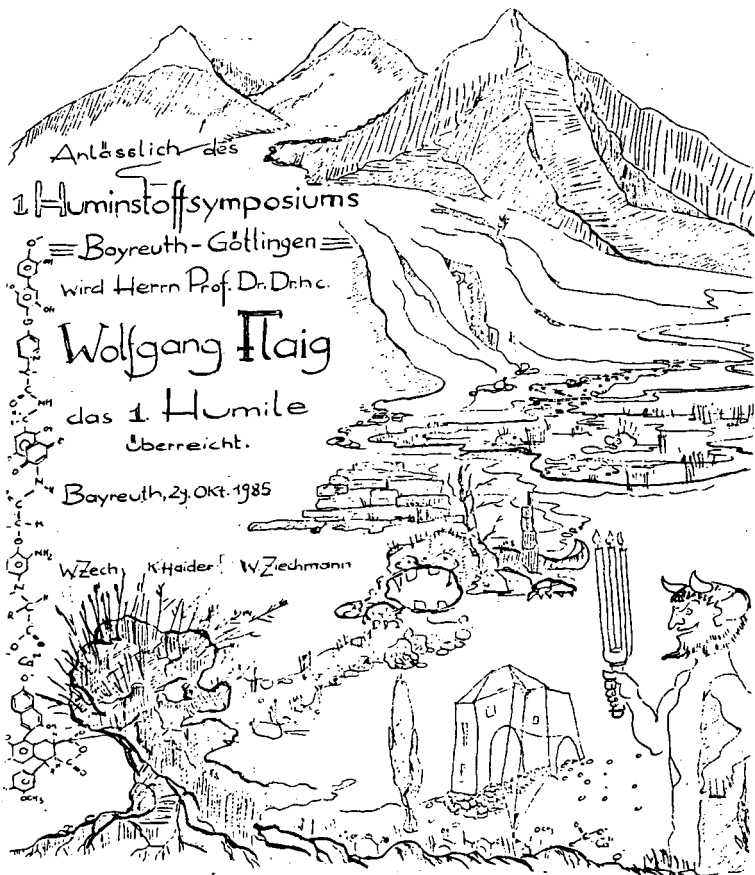 Anlässlich des
1. Huminstoffsymposiums
Bayreuth-Göttingen
wird Herrn Prof. Dr. Dr. h c.
Wolfgang Flaig
das 1. Humile
überreicht.
Bayreuth, 29. Okt. 1985
W Zech K. Haider W. Ziechmann
OH
OH
NH
H
NH₂
R
H
O
Ca
OCH₃